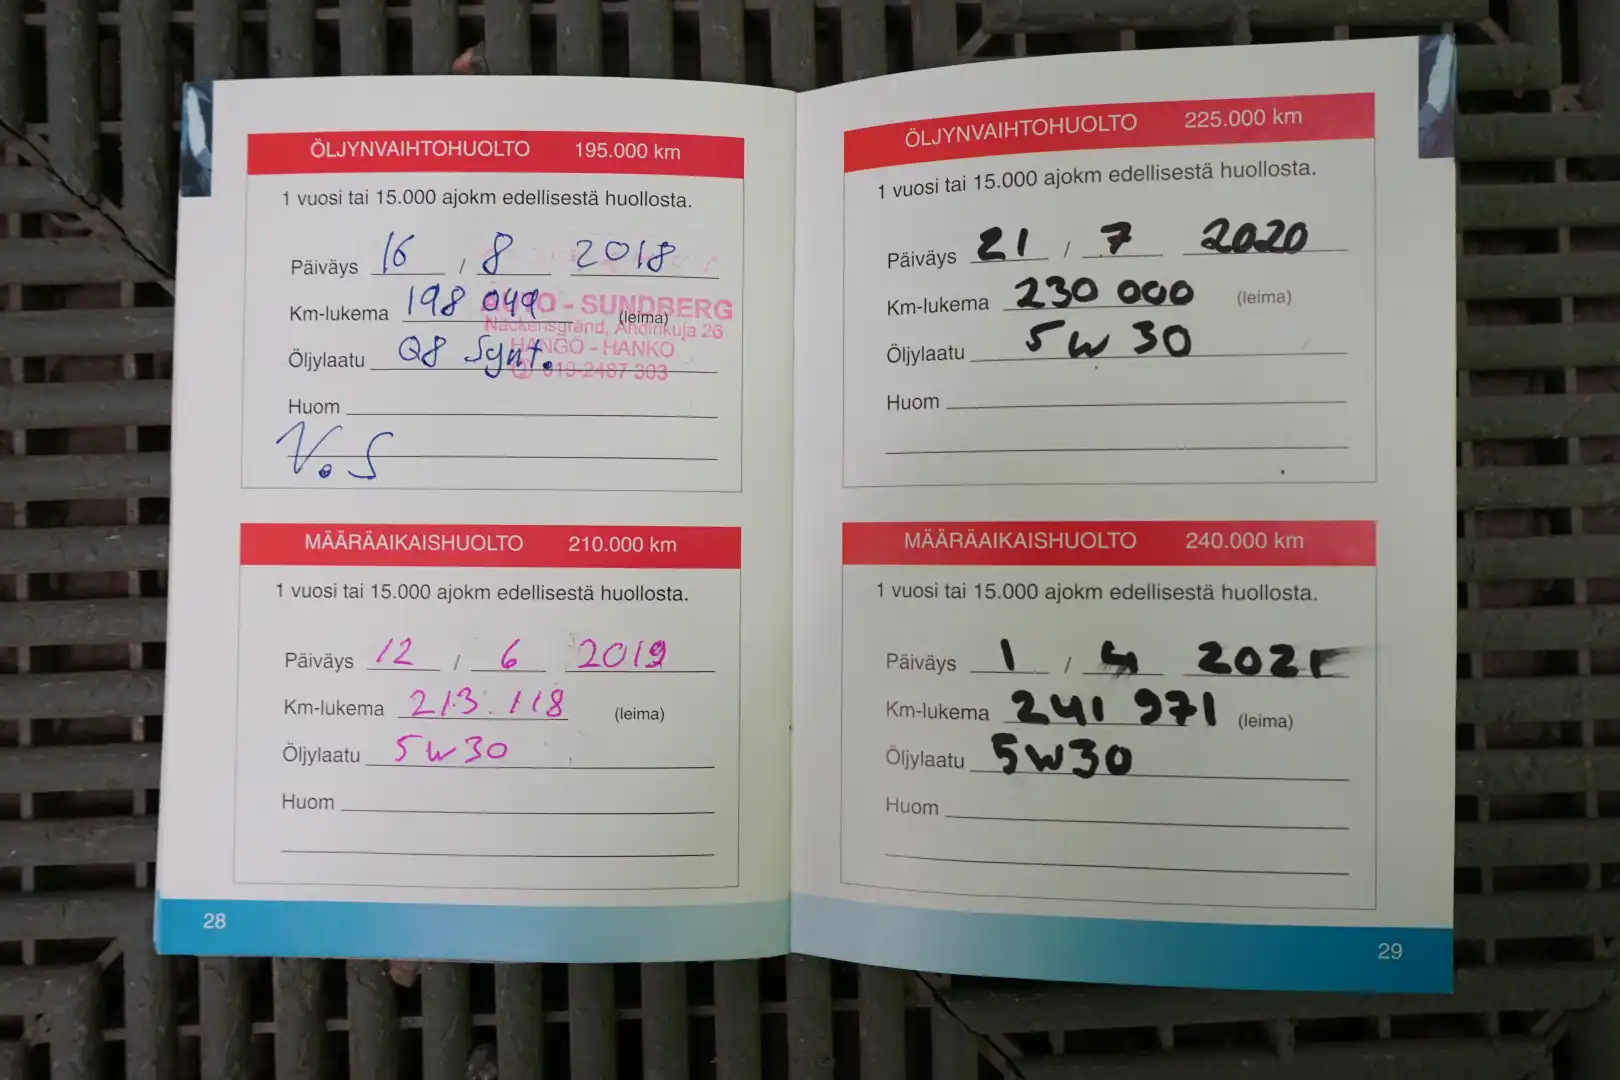 ÖLJYNVAIHTOHUOLTO 195.000 km
1 vuosi tai 15.000 ajokm edellisestä huollosta.
Päiväys 16 / 8 2018
Km-lukema 198 049 (leima)
Öljylaatu Q8 Synt.
AUTO - SUNDBERG
Näckensgränd, Ahdinkuja 26
HANGÖ - HANKO
019-2487 303
Huom
V.S
MÄÄRÄAIKAISHUOLTO 210.000 km
1 vuosi tai 15.000 ajokm edellisestä huollosta.
Päiväys 12 / 6 2019
Km-lukema 213.118 (leima)
Öljylaatu 5w30
Huom
28
ÖLJYNVAIHTOHUOLTO 225.000 km
1 vuosi tai 15.000 ajokm edellisestä huollosta.
Päiväys 21 / 7 2020
Km-lukema 230 000 (leima)
Öljylaatu 5w 30
Huom
MÄÄRÄAIKAISHUOLTO 240.000 km
1 vuosi tai 15.000 ajokm edellisestä huollosta.
Päiväys 1 / 4 2021
Km-lukema 241 971 (leima)
Öljylaatu 5W30
Huom
29